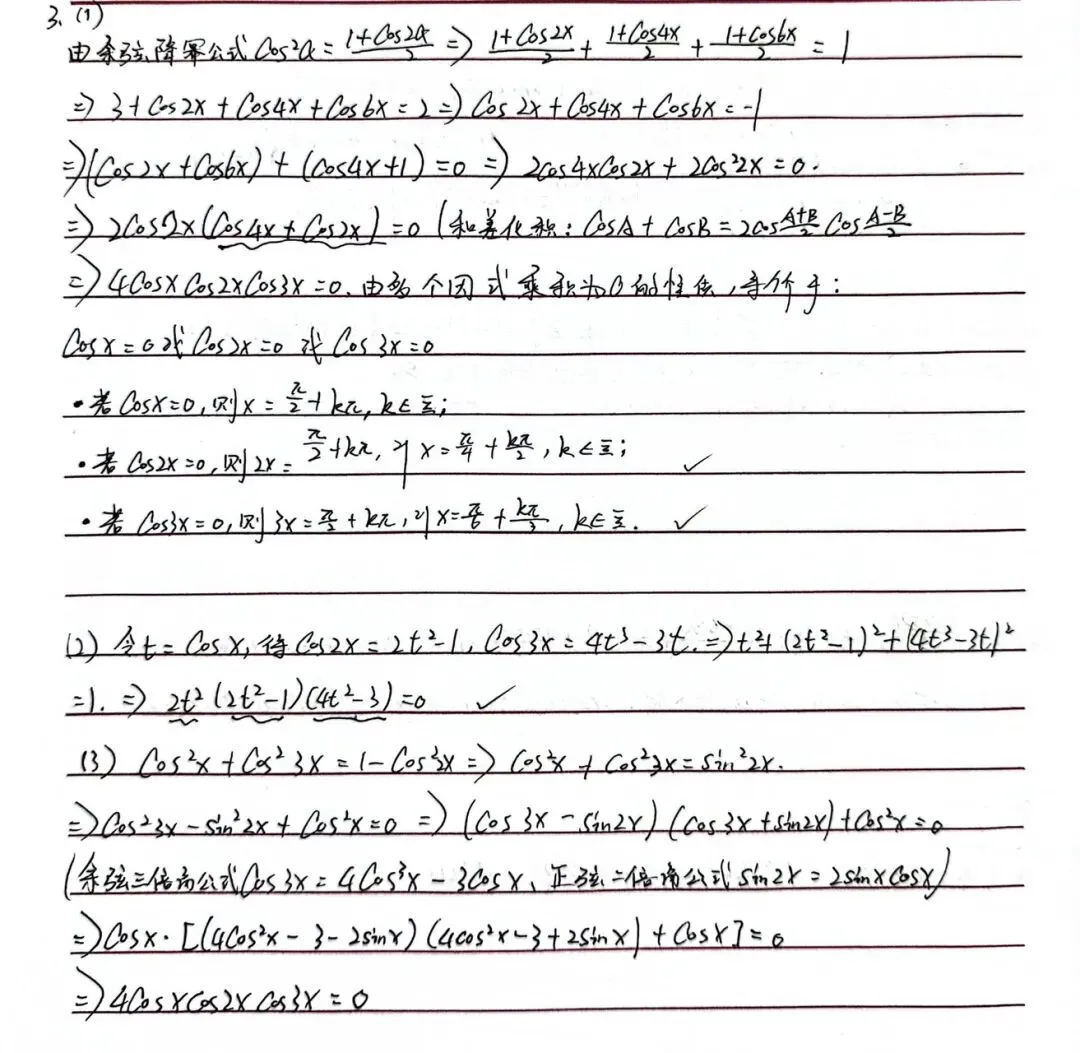 3. (1)
由余弦降幂公式 Cos²α = (1+Cos2α)/2 => (1+Cos2x)/2 + (1+Cos4x)/2 + (1+Cos6x)/2 = 1
=> 3+Cos2x+Cos4x+Cos6x=2 => Cos2x+Cos4x+Cos6x=-1
=> (Cos2x+Cos6x)+(Cos4x+1)=0 => 2Cos4xCos2x+2Cos²2x=0.
=> 2Cos2x(Cos4x+Cos2x)=0 (和差化积: CosA+CosB=2cos(A+B)/2 Cos(A-B)/2
=> 4CosxCos2xCos3x=0. 由多个因式乘积为0的性质, 等价于:
Cosx=0或Cos2x=0或Cos3x=0
• 若Cosx=0, 则x=π/2+kπ, k∈Z;
• 若Cos2x=0, 则2x=π/2+kπ, 即x=π/4+kπ/2, k∈Z; ✓
• 若Cos3x=0, 则3x=π/2+kπ, 即x=π/6+kπ/3, k∈Z. ✓
(2) 令t=Cosx, 得Cos2x=2t²-1, Cos3x=4t³-3t. => t²+(2t²-1)²+(4t³-3t)²
=1. => 2t²(2t²-1)(4t²-3)=0 ✓
(3) Cos²x+Cos²3x=1-Cos²2x => Cos²x+Cos²3x=sin²2x.
=> Cos²3x-sin²2x+Cos²x=0 => (Cos3x-sin2x)(Cos3x+sin2x)+Cos²x=0
(余弦三倍角公式Cos3x=4Cos³x-3Cosx、正弦二倍角公式sin2x=2sinxCosx)
=> Cosx·[(4Cos²x-3-2sinx)(4cos²x-3+2sinx)+Cosx]=0
=> 4CosxCos2xCos3x=0